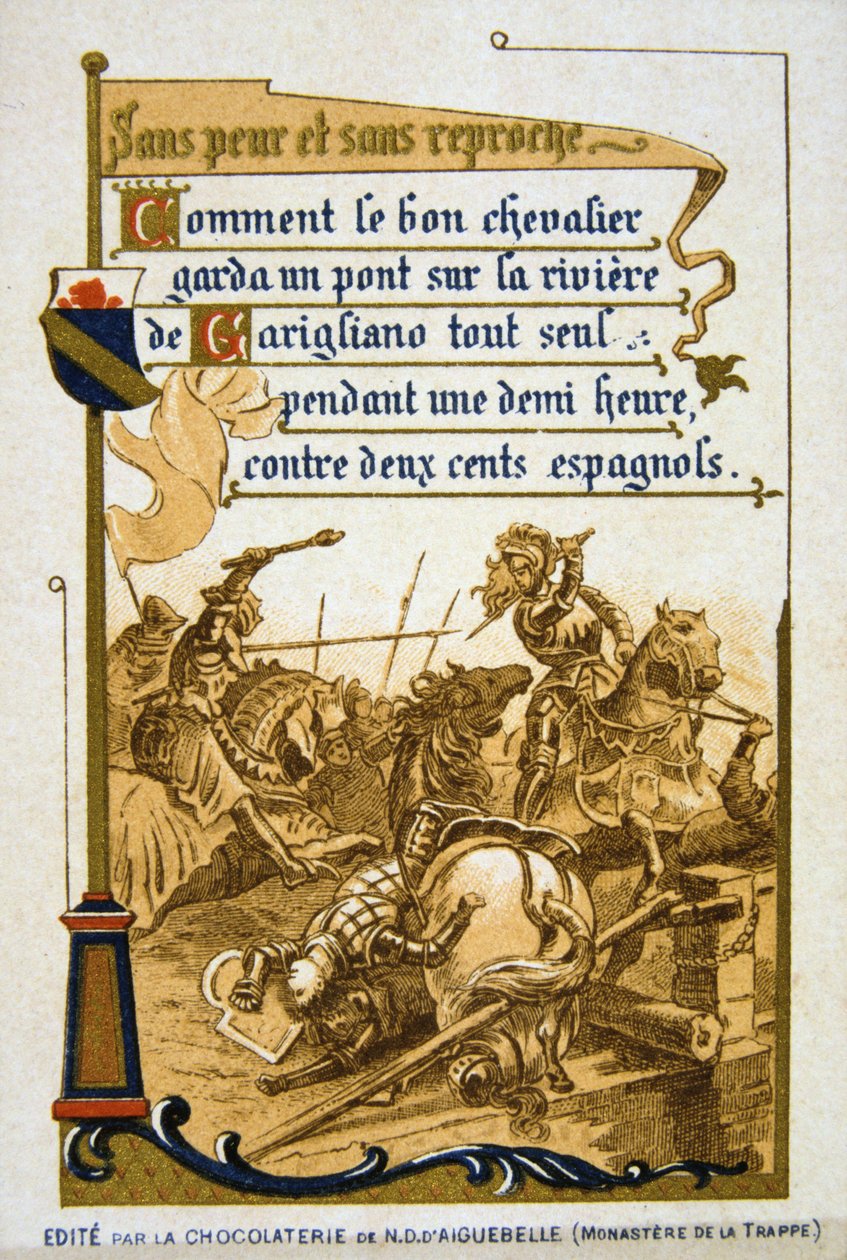 Sans peur et sans reproche
Comment le bon chevalier
garda un pont sur la rivière
de Garigliano tout seul
pendant une demi heure,
contre deux cents espagnols.
EDITÉ PAR LA CHOCOLATERIE DE N.D.D'AIGUEBELLE (MONASTÈRE DE LA TRAPPE.)